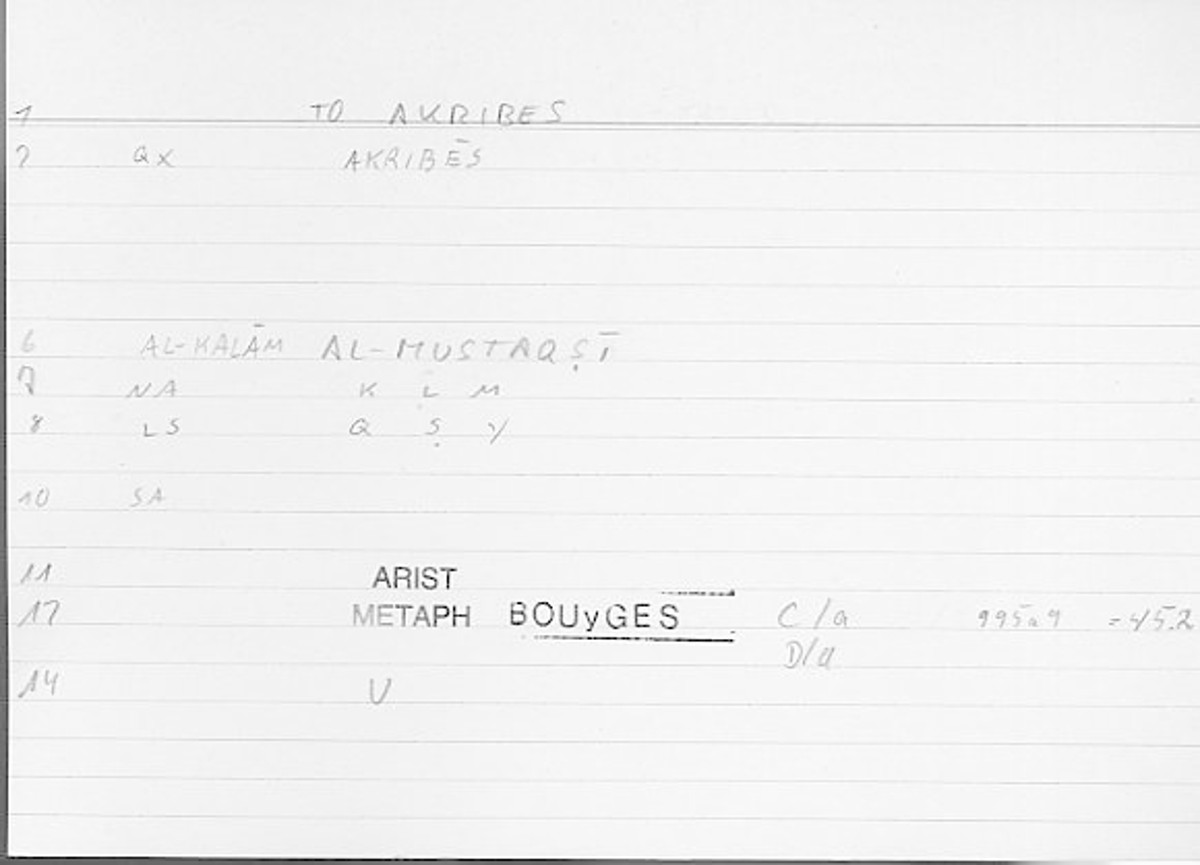 1 TO AKRIBES
2 QX AKRIBĒS
6 AL-KALĀM AL-MUSTAQṢĪ
7 NA K L M
8 LS Q Ṣ Y
10 SA
11 ARIST
12 METAPH BOUyGES C/a 995a9 =45.2
D/a
14 U